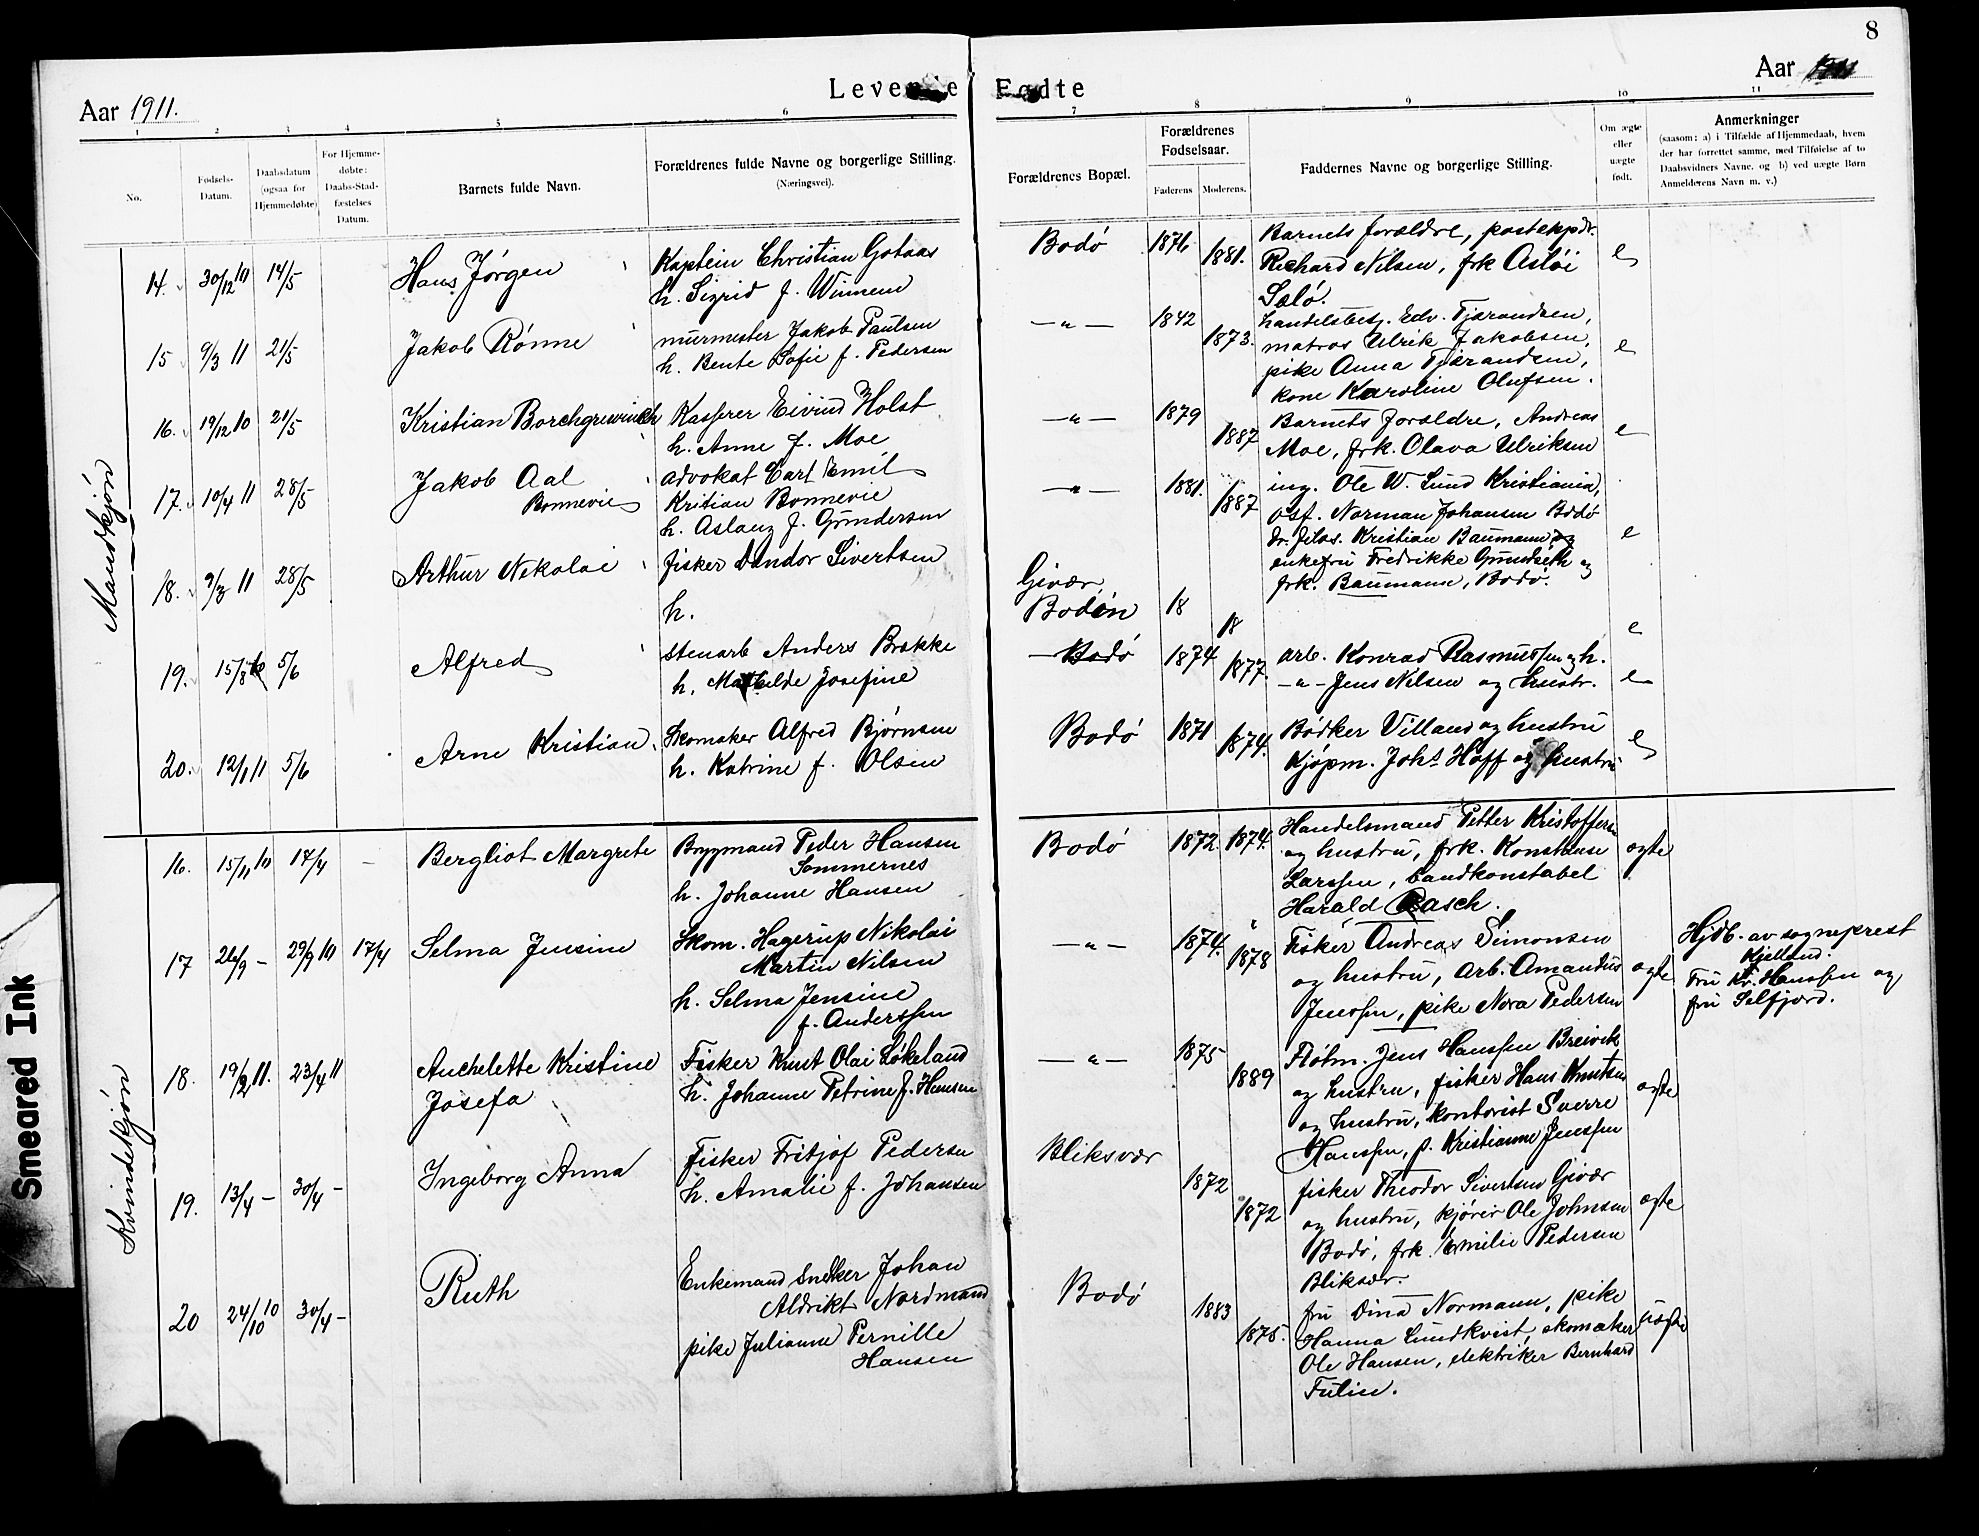 8
Levende Fødte
Aar 1911.
Aar
1 2 3 4 5 6 7 8 9 10 11
No.
Fødsels-
Datum.
Daabsdatum
(ogsaa for
Hjemmedøbte)
For Hjemme-
døbte:
Daabs-Stad-
fæstelses
Datum.
Barnets fulde Navn.
Forældrenes fulde Navne og borgerlige Stilling.
(Næringsvei).
Forældrenes Bopæl.
Forældrenes
Fødselsaar.
Faderens Moderens.
Faddernes Navne og borgerlige Stilling.
Om ægte
eller
uægte
født.
Anmerkninger
(saasom: a) i Tilfælde af Hjemmedaab, hvem
der har forrettet samme, med Tilføielse af to
Daabsvidners Navne, og b) ved uægte Børn
Anmelderens Navn m. v.)
Mandkjøn
14. 30/12 10 14/5
Hans Jørgen
Kaptein Christian Gotaas
h. Sigrid f. Winnem
Bodø 1876 1881.
Barnets forældre, postexpdr.
Richard Nilsen, frk Asløi
Salø.
e
15 9/3 11 21/5
Jakob Rønne
murmester Jakob Paulsen
h. Bente Sofie f. Pedersen
—"— 1842 1873.
handelsbestj. Edv. Tjærandsen,
matros Ulrik Jakobsen,
pike Anna Tjærandsen,
kone Karoline Olufsen.
e
16. 19/12 10 21/5
Kristian Borchgrewinck
Kasserer Eivind Holst
h. Anne f. Moe
—"— 1879 1887
Barnets forældre, Andreas
Moe, frk. Olava Ulriksen
e
17. 10/4 11 28/5
Jakob Aal
Bonnevie
advokat Carl Emil
Kritian Bonnevie
h. Aslaug f. Gundersen
—"— 1881. 1887
ing. Ole W. Lund Kristiania,
Osf. Norman Johansen Bodø
Dr. filos. Kristian Baumann og
enkefru Fredrikke Grundseth og
frk. Baumann, Bodø.
e
18. 9/3 11 28/5
Arthur Nikolai
fisker Dandor Sivertsen
h.
Givær,
Bodin 18 18
e
19. 15/8 10 5/6
Alfred
stenarb Anders Brække
h. Mathilde Josefine
Bodø 1874 1877.
arb. Konrad Rasmussen og h.
—"— Jens Nilsen og hustr.
e
20. 12/1 11 5/6
Arne Kristian
Skomaker Alfred Bjørnsen
h. Katrine f. Olsen
Bodø 1871 1874.
Bødker Villand og hustru
Kjøpm. Johs Hoff og hustru
e
Kvindekjøn
16. 15/11 10 17/4 —
Bergliot Margrete
Bryggmand Peder Hansen
Sommernes
h. Johanne Hansen
Bodø 1872 1874.
Handelsmand Petter Kristoffersen
og hustru, frk. Konstanse
Larssen, baandkonstabel
Harald Rasch.
ægte
17 26/9 — 29/9 10 17/4
Selma Jensine
Skom. Hagerup Nikolai
Martin Nilsen
h. Selma Jensine
f. Anderssen
—"— 1874. 1878
Fisker Andreas Simonsen
og hustru, arb. Amandus
Jenssen, pike Nora Pedersen
ægte
Hjdb. av sogneprest
Kjelland.
Fru Kr. Hanssen og
fru Selfjord.
18. 19/2 11. 23/4 11
Anchelette Kristine
Josefa
Fisker Knut Olai Løkeland
h. Johanne Petrine f. Hansen
—"— 1875 1889
Fløtm. Jens Hanssen Breivik
og hustru, fisker Hans Knutsen
og hustru, kontorist Sverre
Hanssen, p. Kristianne Jenssen
ægte
19. 13/4 — 30/4 —
Ingeborg Anna
Fisker Fritjof Pedersen
h. Amalie f. Johansen
Bliksvær 1872 1872
fisker Theodor Sivertsen Givær
og hustru, kjører Ole Johnsen
Bodø, frk. Emilie Pedersen
Bliksvær.
ægte
20 24/10 10 30/4 —
Ruth
Enkemand snekker Johan
Aldrikt Nordmand
pike Julianne Pernille
Hansen
Bodø 1883 1875.
fru Dina Normann, pike
Hanna Lundkvist, skomaker
Ole Hansen, elektriker Bernhard
Tulin.
uægte
Smeared Ink